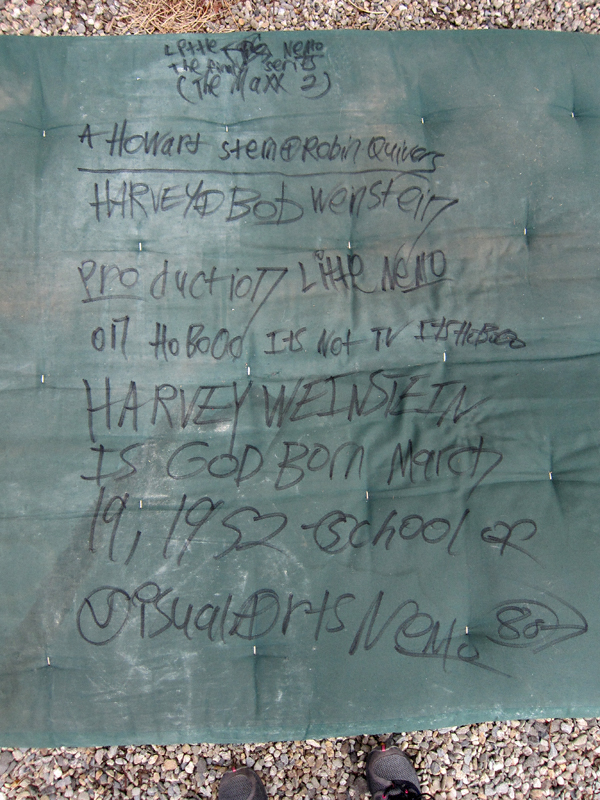 Little Nemo
the final series
(The Maxx 2)
A Howard Stern @ Robin Quivers
HARVEY @ Bob Wenstein
Production Little Nemo
on HoBOOO Its Not TV Its HoBooo
HARVEY WEINSTEIN
IS GOD Born March
19, 1952 School of
Visual Arts Nemo